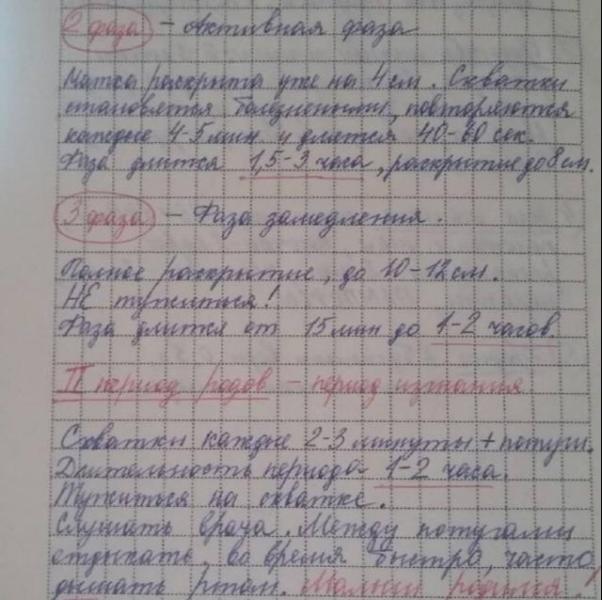 2 фаза – Активная фаза
Матка раскрыта уже на 4 см. Схватки
становятся болезненными, повторяются
каждые 4-5 мин и длятся 40-60 сек.
Фаза длится 1,5-3 часа, раскрытие до 8 см.
3 фаза – Фаза замедления.
Полное раскрытие, до 10-12 см.
НЕ тужиться!
Фаза длится от 15 мин до 1-2 часов.
II период родов – период изгнания
Схватки каждые 2-3 минуты + потуги.
Длительность периода – 1-2 часа.
Тужиться на схватке.
Слушать врача. Между потугами
отдыхать, во время быстро, часто
дышать ртом. Малыш родился!